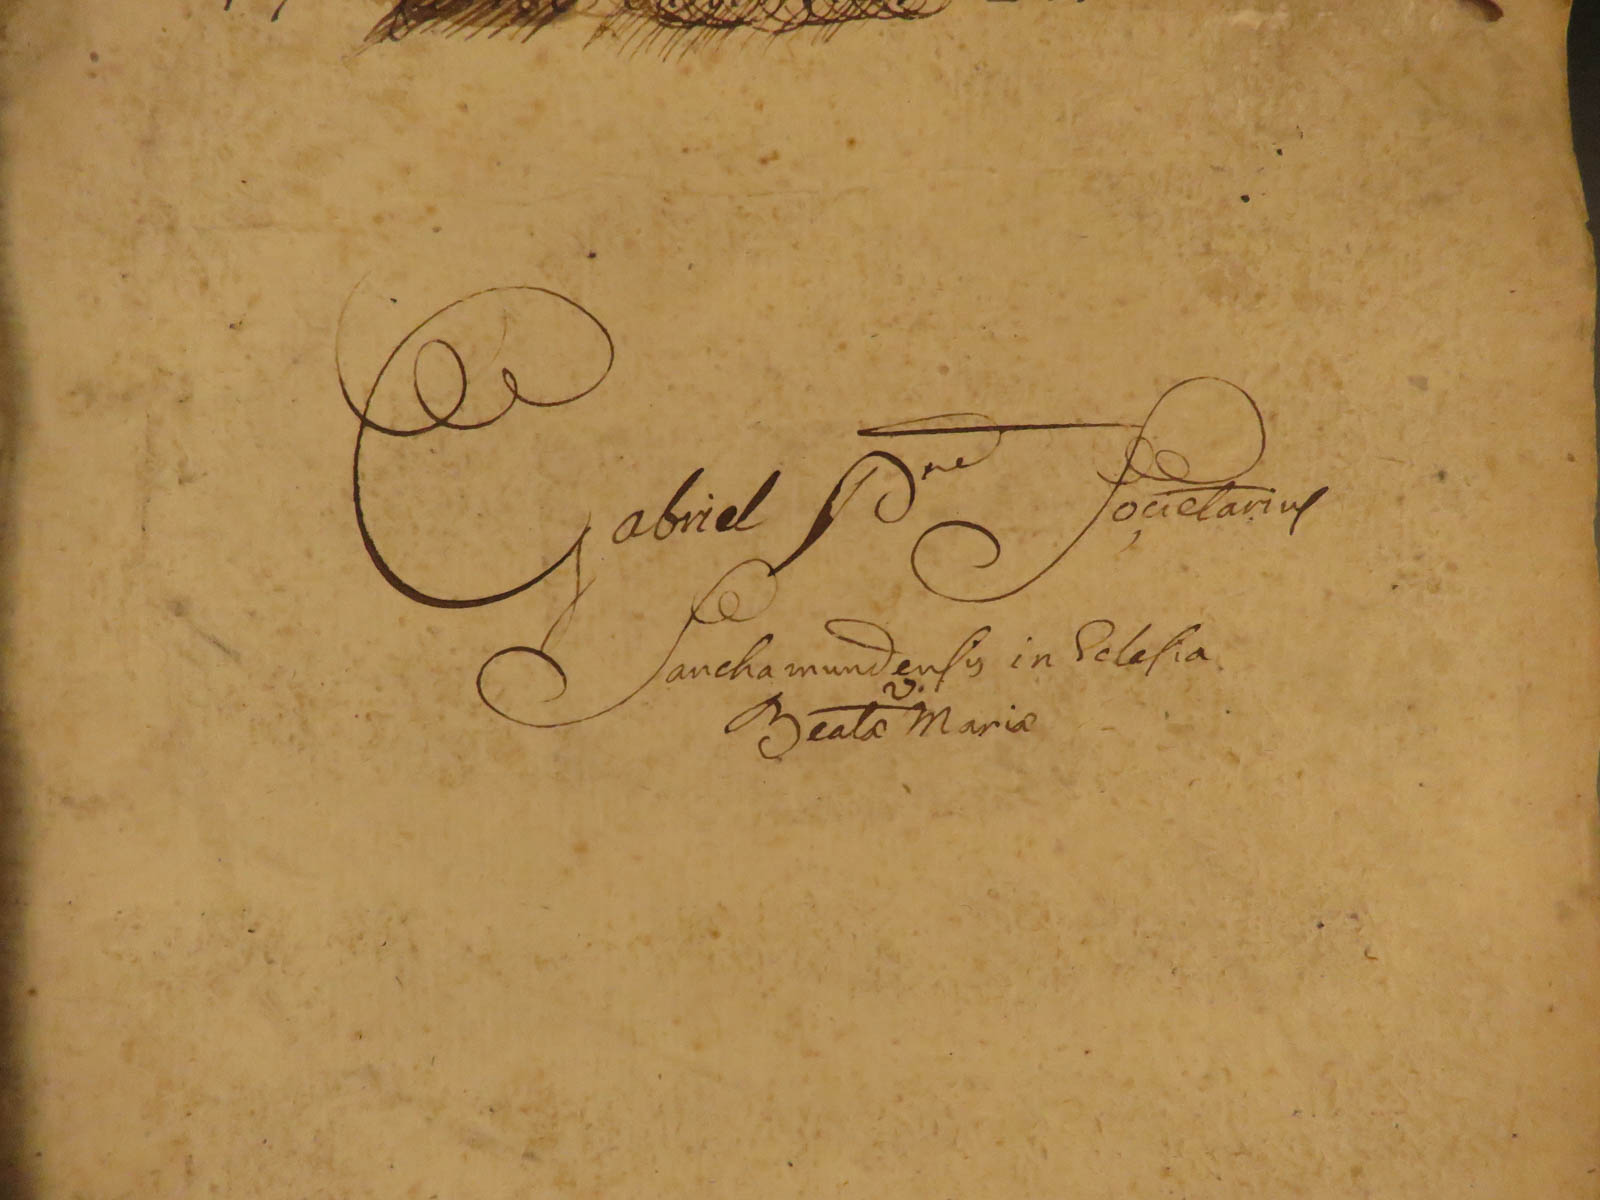 Gabriel Pre Societarius
Sanchamundensis in Eclesia
Beatæ v. Mariæ